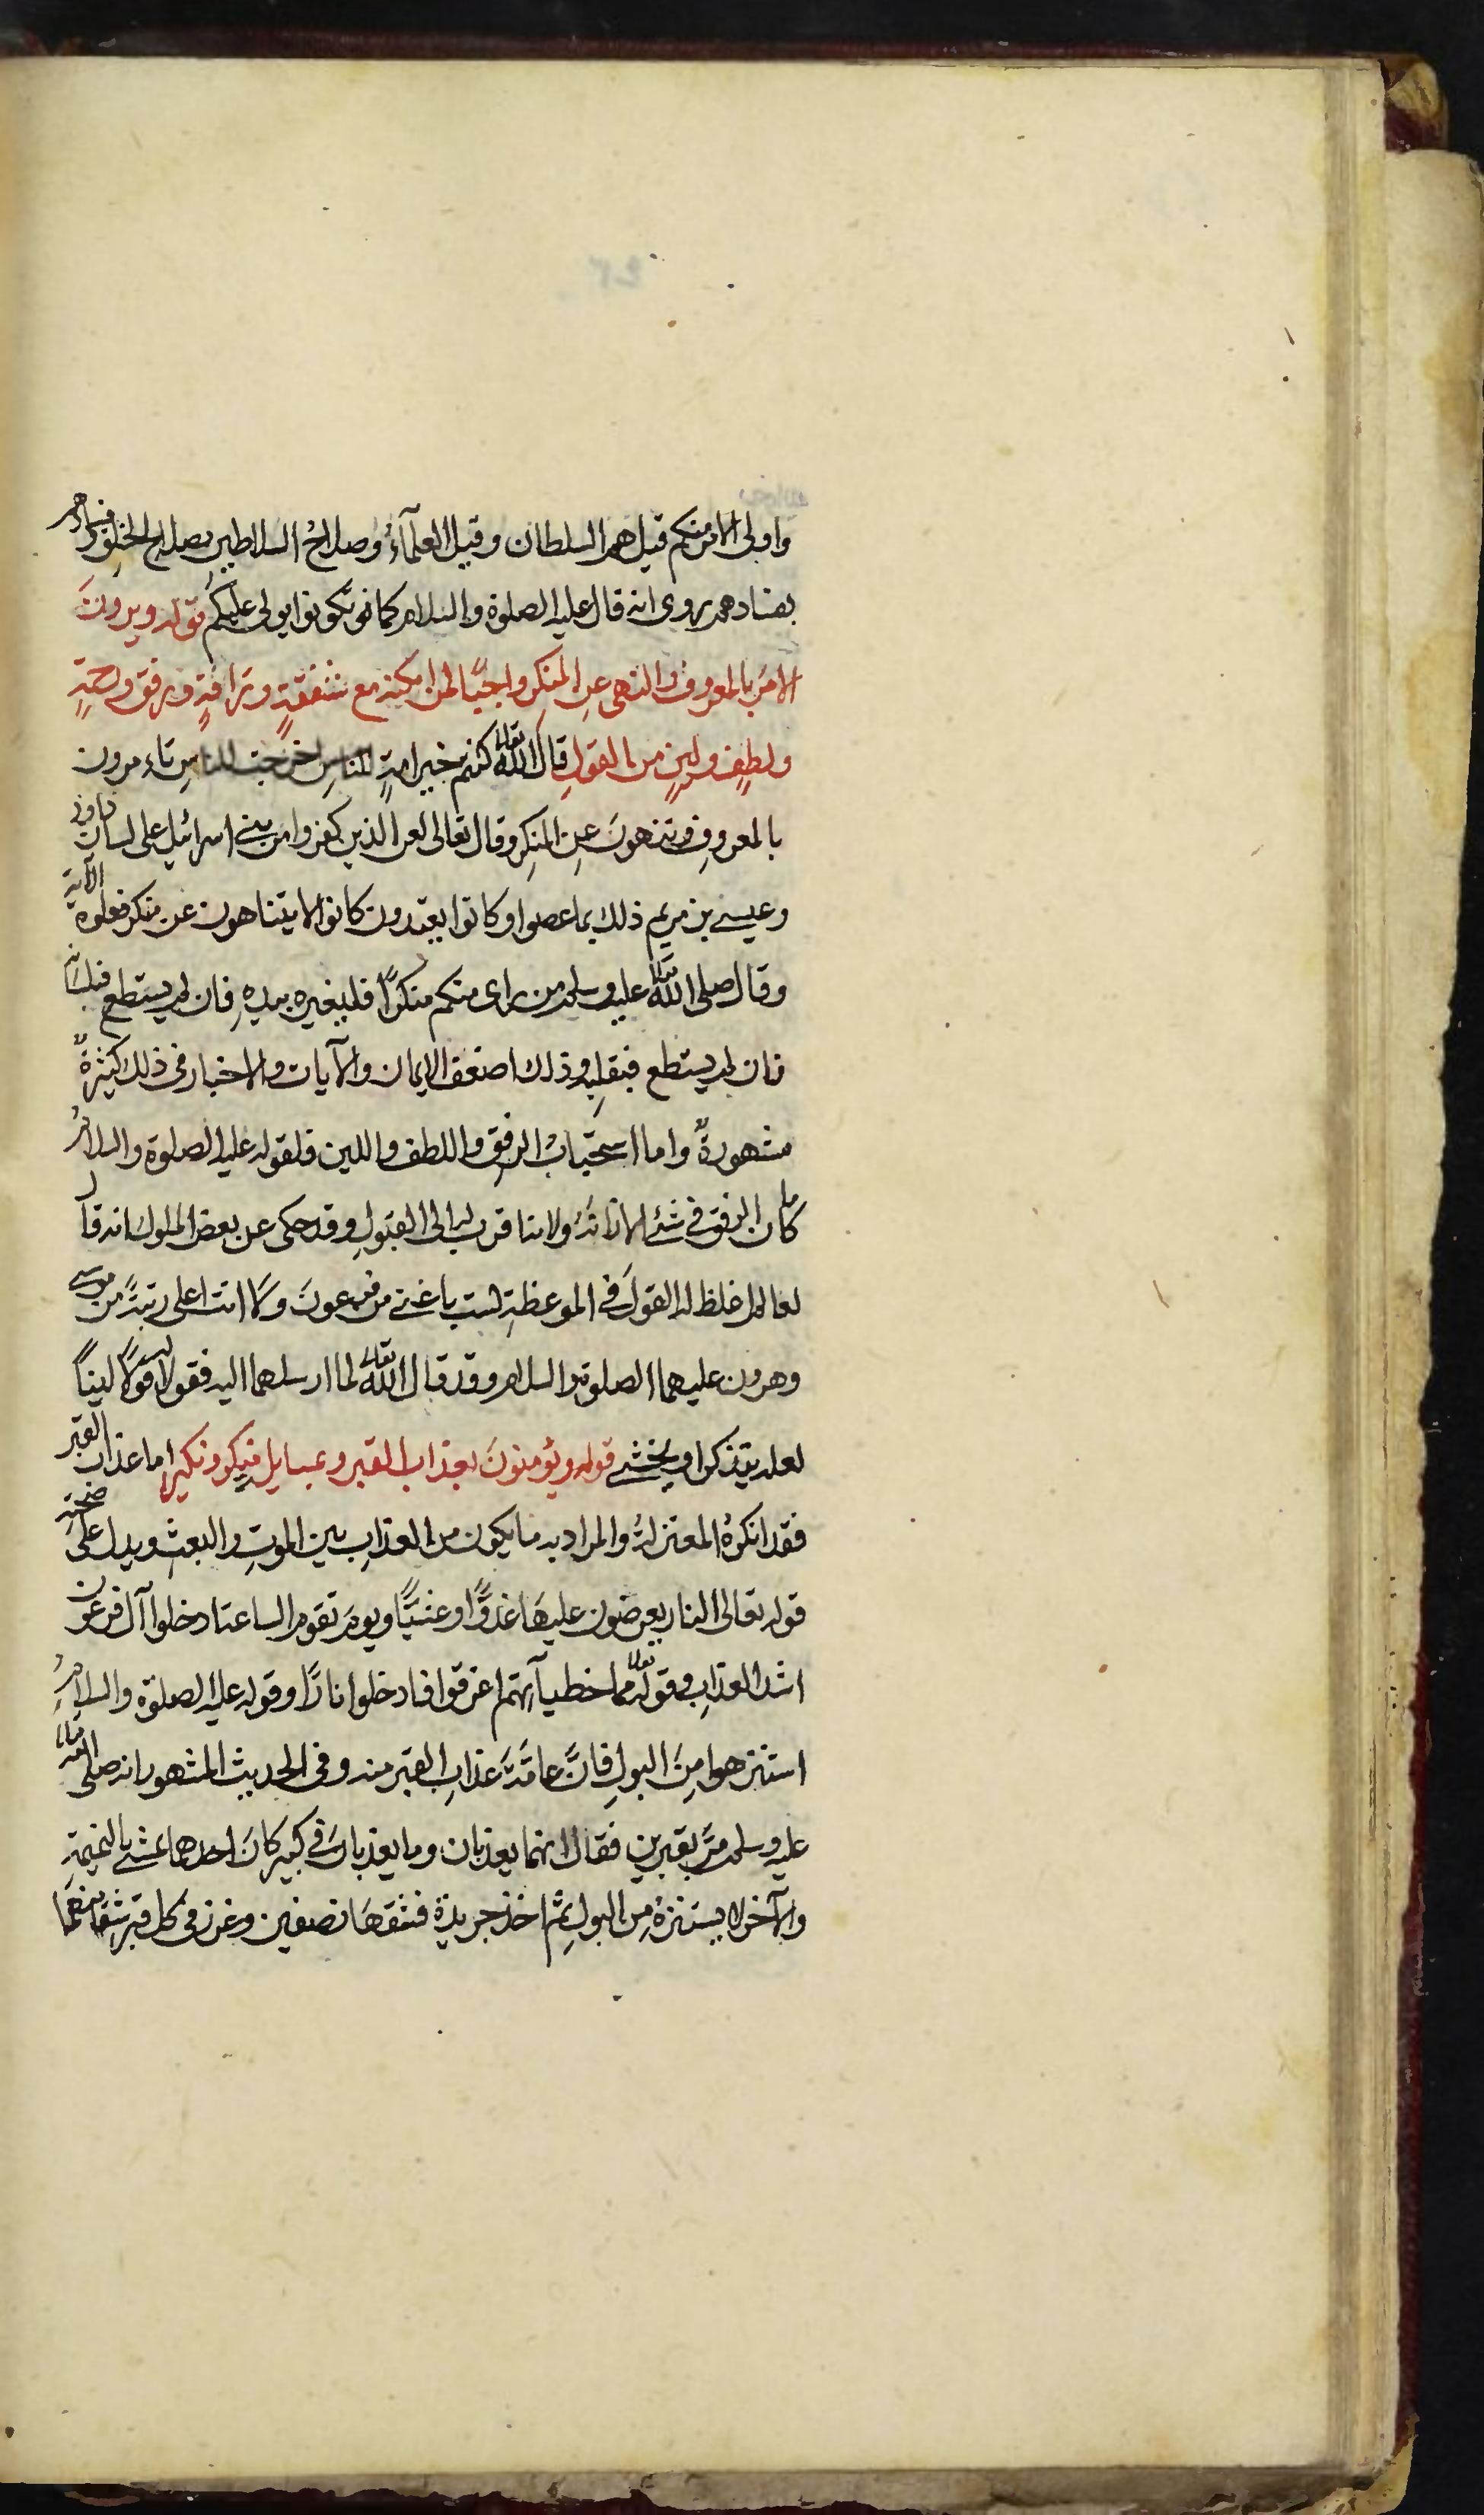 واولى الامر منكم قيل هم السلطان وقيل العلمآءُ وصلاحُ السلاطين بصلاح الخلق وفسادهم
بفسادهم روى انه قال عليه الصلوة والسلام كما تكونوا يولى عليكم قوله ويرونَ
الامرَ بالمعروف والنهى عنِ المنكرِ واجبًا لمن امكنه مع شفقةٍ ورَافةٍ ورفقٍ ورحمةٍ
ولطفٍ ولينٍ من القولِ قال الله تعالى كنتم خير امةٍ اخرجت للناسِ تاءمرون
بالمعروفِ وتنهونَ عنِ المنكرِ وقال تعالى لعن الذين كفروا من بنى اسرائيل على لسان داود
وعيسى بن مريم ذلك بما عصوا وكانوا يعتدون كانوا لا يتناهون عن منكر فعلوه الآية
وقال صلى الله تعالى عليه وسلم من راى منكم منكرًا فليغيره بيدهِ فان لم يستطع فبلسانه
فان لم يستطع فبقلبِه وذلك اضعف الايمان والآيات والاخبار فى ذلك كثيرةٌ
مشهورةٌ واما استحبَابُ الرفقِ واللطف واللين فلقوله عليه الصلوة والسلامُ
ما كان الرفق فى شئ الا زانَهُ ولانه اقرب الى القبولِ وقد حكى عن بعض الملوك انه قال
لعالم اغلظ له القولَ فى الموعظةِ لست باعتى من فرعونَ ولا انت اعلى رتبةً من موسى
وهرون عليهما الصلوة والسلام وقد قال الله تعالى لما ارسلهما اليه فقولا له قولًا لينًا
لعله يتذكر او يخشى قوله ويؤمنونَ بعذاب القبر وبمسايل منكر ونكير اما عذاب القبر
فقد انكرهُ المعتزلةُ والمراد به ما يكون من العذابِ بين الموتِ والبعثِ ويدل على صحته
قوله تعالى النار يعرضون عليهَا غدوًّا وعشيًّا ويومَ تقوم الساعة ادخلوا آل فرعون
اشد العذابِ وقوله تعالى مما خطيآتهم اغرقوا فادخلوا نارًا وقوله عليه الصلوة والسلامُ
استنزهوا مِنَ البولِ فانَّ عامَّةَ عذابِ القبر منه وفى الحديث المشهور انه صلى الله تعالى
عليه وسلم مرَّ بقبرين فقال انهما يعذبان وما يعذبان فى كبير كانَ احدهما يمشى بالنميمة
والآخر لا يستنزهُ مِن البولِ ثم اخذ جريدة فشقهَا نصفين وغرز فى كل قبر شقا منهما